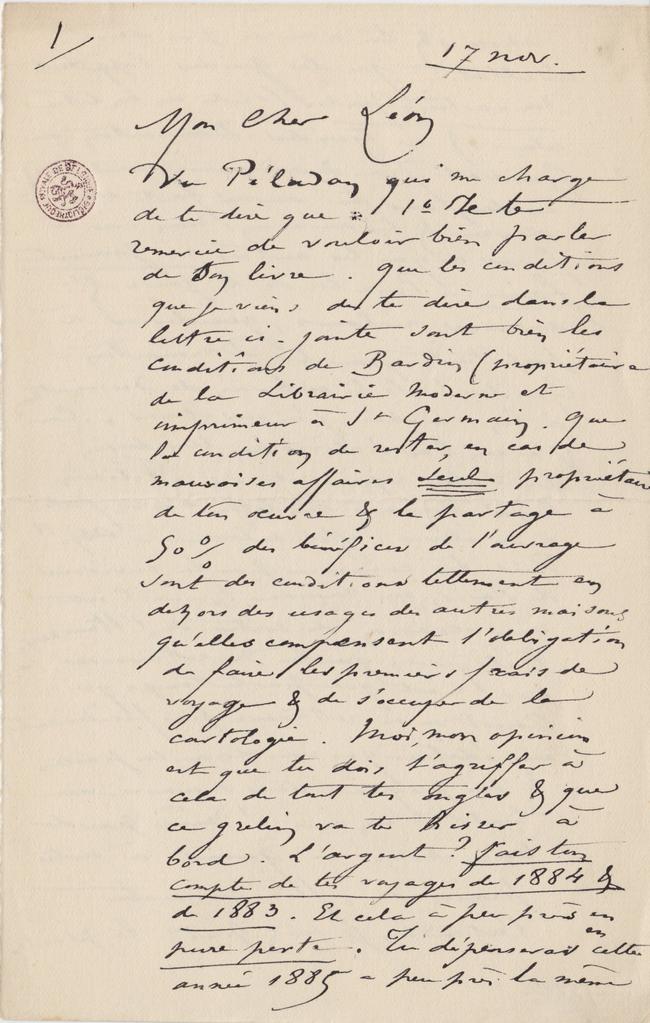 1/
17 nov.
Mon Cher Léon
Vu Péladan qui me charge
de te dire que 1º Je te
remercie de vouloir bien parler
de son livre. que les conditions
que je viens de te dire dans la
lettre ci-jointe sont bien les
conditions de Bardin (propriétaire
de la Librairie Moderne et
imprimeur à St Germain. que
la condition de rester, en cas de
mauvaises affaires seul propriétaire
de ton œuvre & le partage à
50 % des bénéfices de l'ouvrage
sont des conditions tellement en
dehors des usages des autres maisons
qu'elles compensent l'obligation
de faire les premiers frais de
voyage & de s'occuper de la
cartologie. Moi, mon opinion
est que tu dois t'agriffer à
cela de tout tes ongles & que
ce grelin va te hisser à
bord. L'argent? fais ton
compte de tes voyages de 1884 &
de 1883. Et cela à peu près en
pure perte. Tu dépenserais en cette
année 1885 a peu près la même